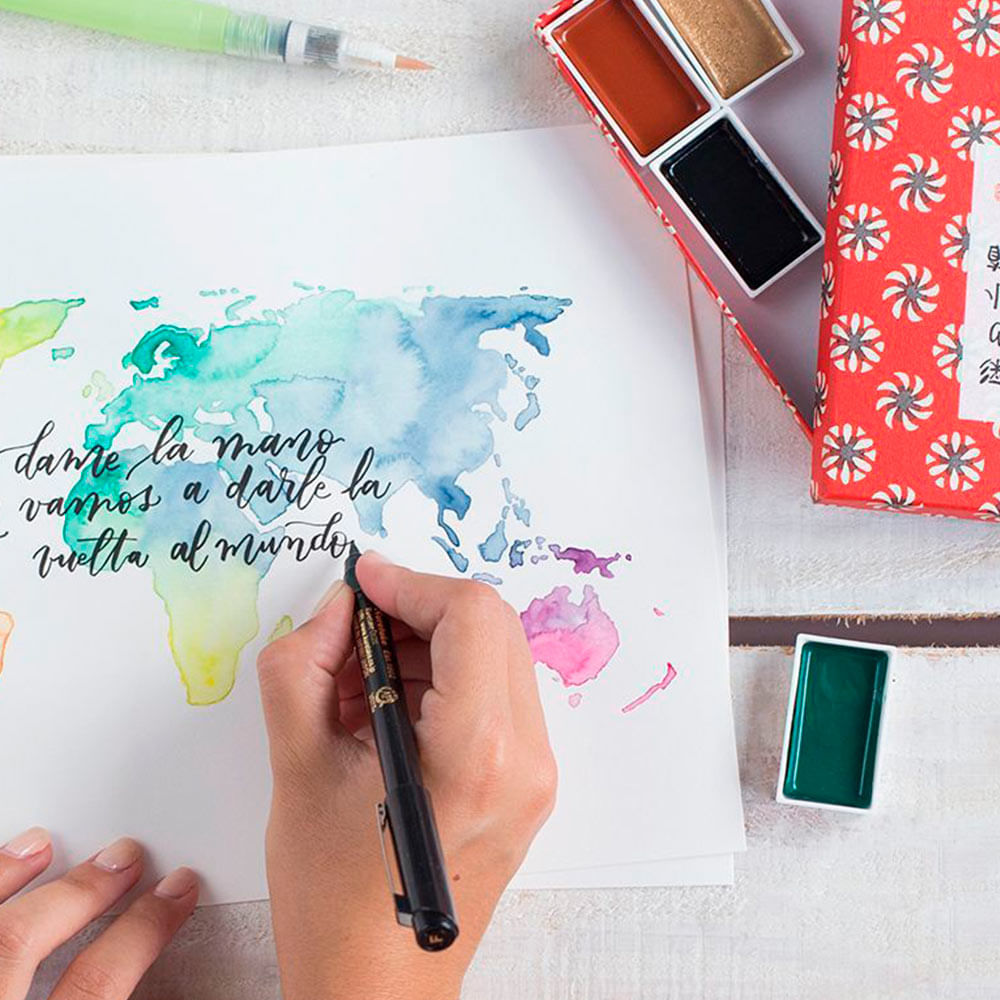 dame la mano
vamos a darle la
vuelta al mundo
F